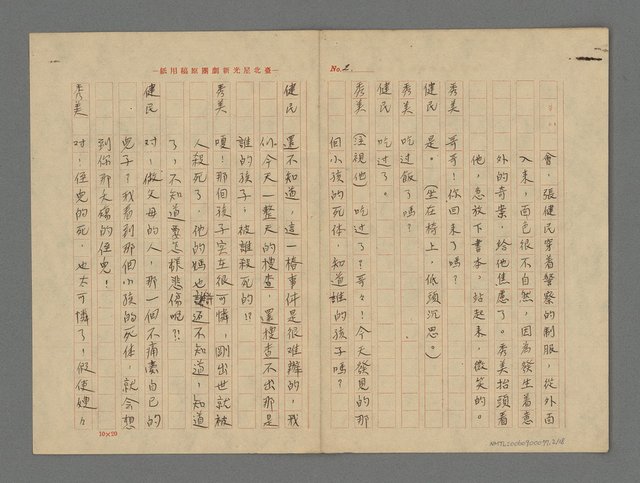 No. 2.
會，張健民穿着警察的制服，從外面
入來，面色很不自然，因為發生着意
外的奇案，給他焦慮了。秀美抬頭看
他，急放下書本，站起來，微笑的。
秀美 哥哥！你回來了嗎？
健民 是。（坐在椅上，低頭沉思。）
秀美 吃过飯了嗎？
健民 吃过了。
秀美 （注視他）吃过了？哥々！今天發見的那
個小孩的死体，知道誰的孩子嗎？
健民 還不知道，這一樁事件是很难辦的，我
們今天一整天的搜查，還搜查不出那是
誰的孩子，被誰殺死的！！
秀美 嗄！那個孩子实在很可憐，剛出世就被
人殺死了，他的媽也許还不知道，知道
了，不知道要怎樣悲傷呢？！
健民 对！做父母的人，那一個不痛責自己的
兒子？我看到那個小孩的死体，就会想
到你那夭殤的侄兒！
秀美 对！侄兒的死，也太可憐了！假使嫂々
臺北星光新劇團原稿用紙
10×20
NMTL:0060900097.2/18